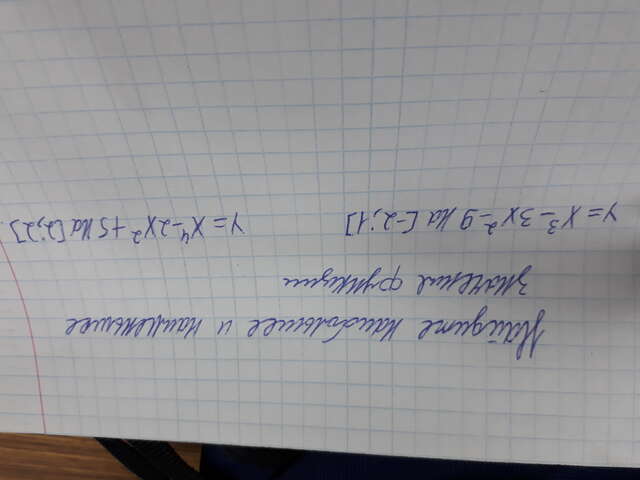 Найдите наибольшее и наименьшое
значения функции
y = x³ - 3x² - 9 на [-2; 1] y = x⁴ - 2x² + 5 на [2; 2].